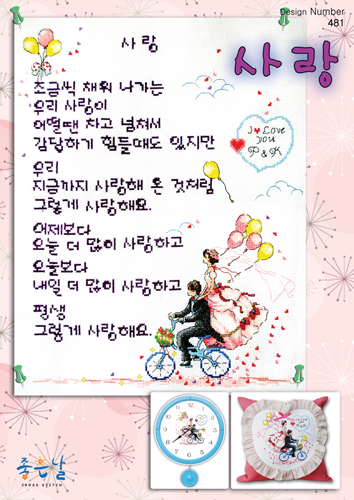 Design Number
481
사랑
사 랑
조금씩 채워 나가는
우리 사랑이
어떨땐 차고 넘쳐서
감당하기 힘들때도 있지만
I ♥ Love
you
P & K
우리
지금까지 사랑해 온 것처럼
그렇게 사랑해요.
어제보다
오늘 더 많이 사랑하고
오늘보다
내일 더 많이 사랑하고
평생
그렇게 사랑해요.
좋은날
CROSS STITCH